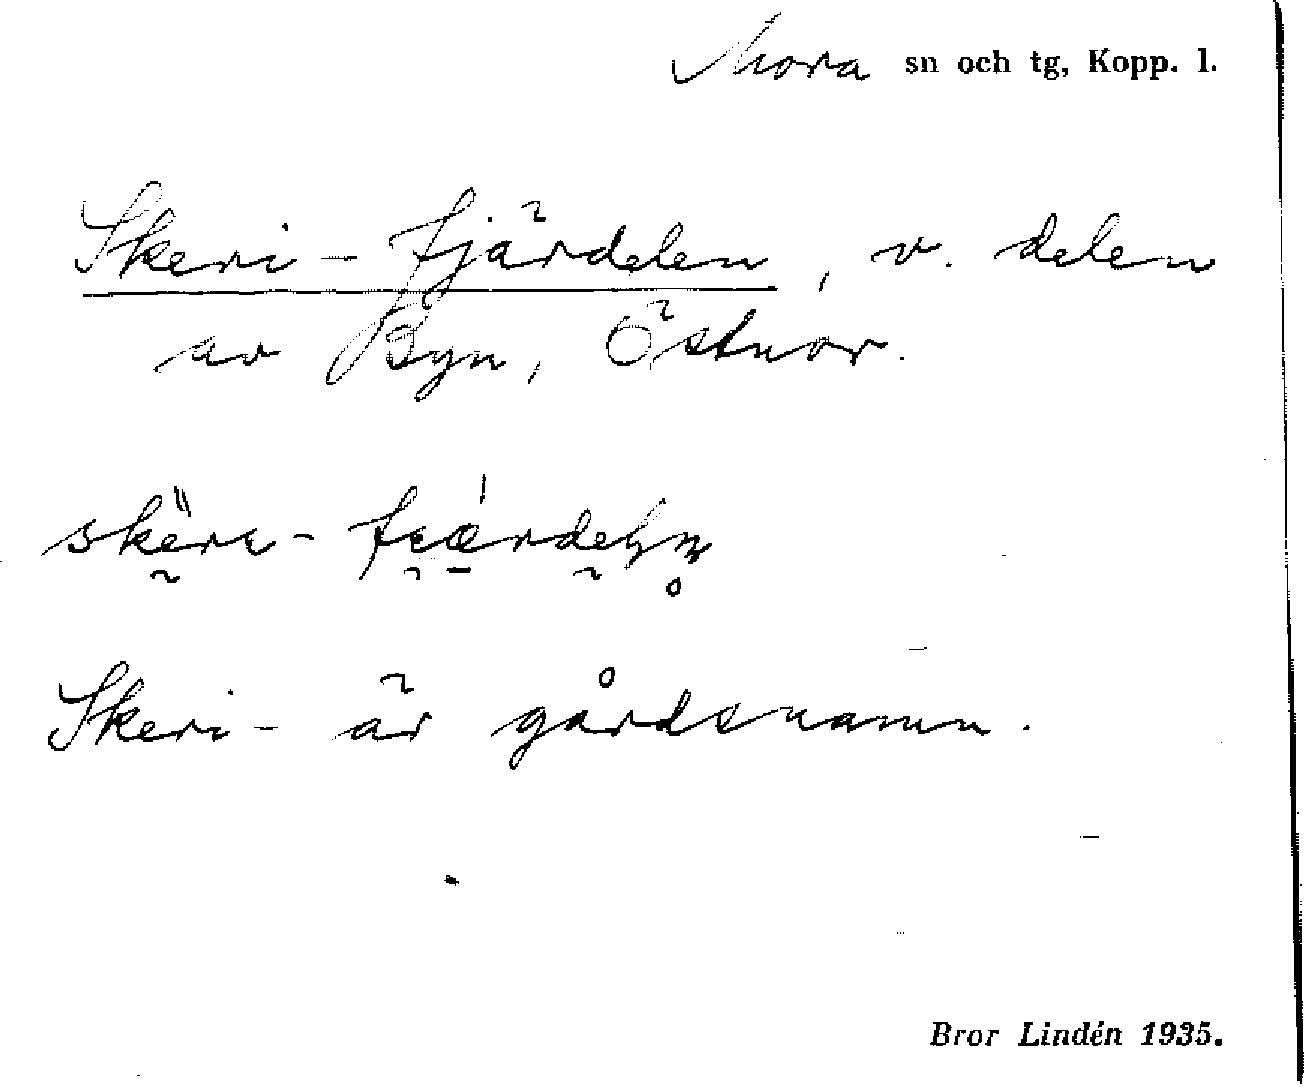 Mora sn och tg, Kopp. l.
Skeri-fjärdelen, v. delen
av Byn, Östnor.
Skeri- är gårdsnamn.
Bror Lindén 1935.